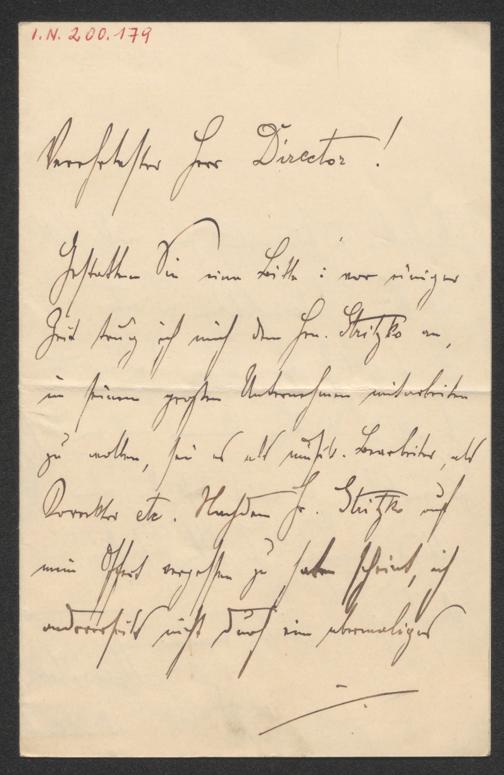 I.N. 200.179
Verehrtester Herr Director!
Gestatten Sie eine Bitte: vor einiger
Zeit trug ich mich dem Hrn. Stritzko an,
in seinem großen Unternehmen mitarbeiten
zu wollen, sei es als musik. Bearbeiter, als
Korrektor etc. Nachdem H. Stritzko auf
mein Offert vergessen zu haben scheint, ich
andererseits nicht durch ein abermaliges